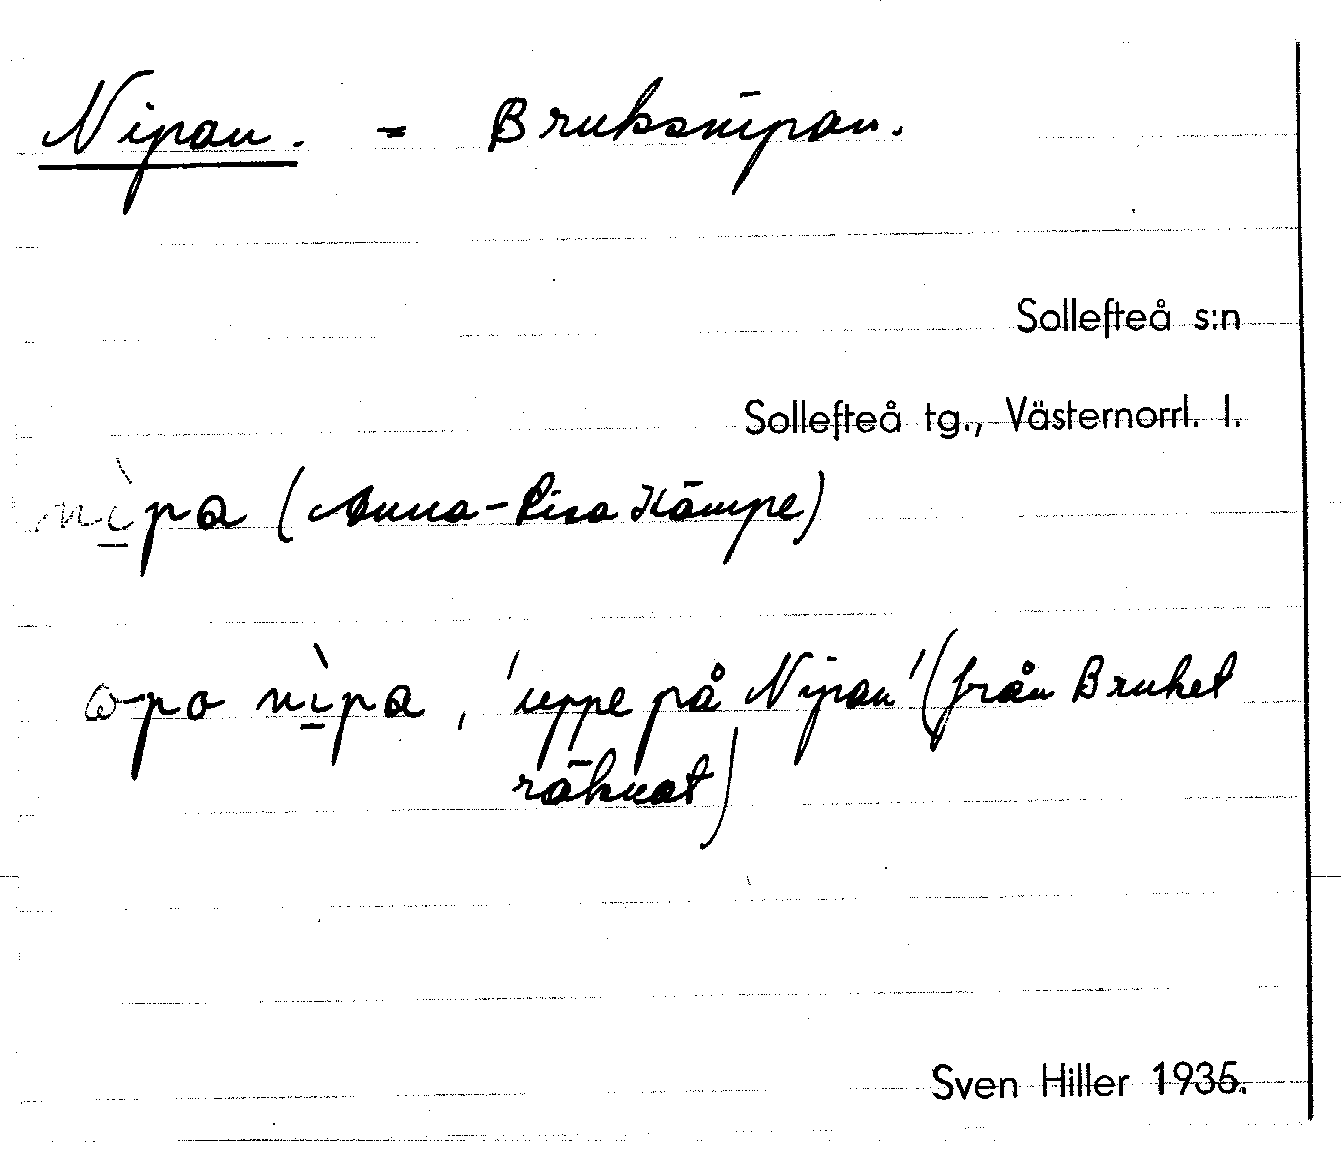 Nipan. = Bruksnipan.
Sollefteå s:n
Sollefteå tg., Västernorrl. l.
nı̱̀pa (Anna-Lisa Kämpe)
ωpo nı̱̀pa, 'uppe på Nipan' (från Bruket
räknat)
Sven Hiller 1935.